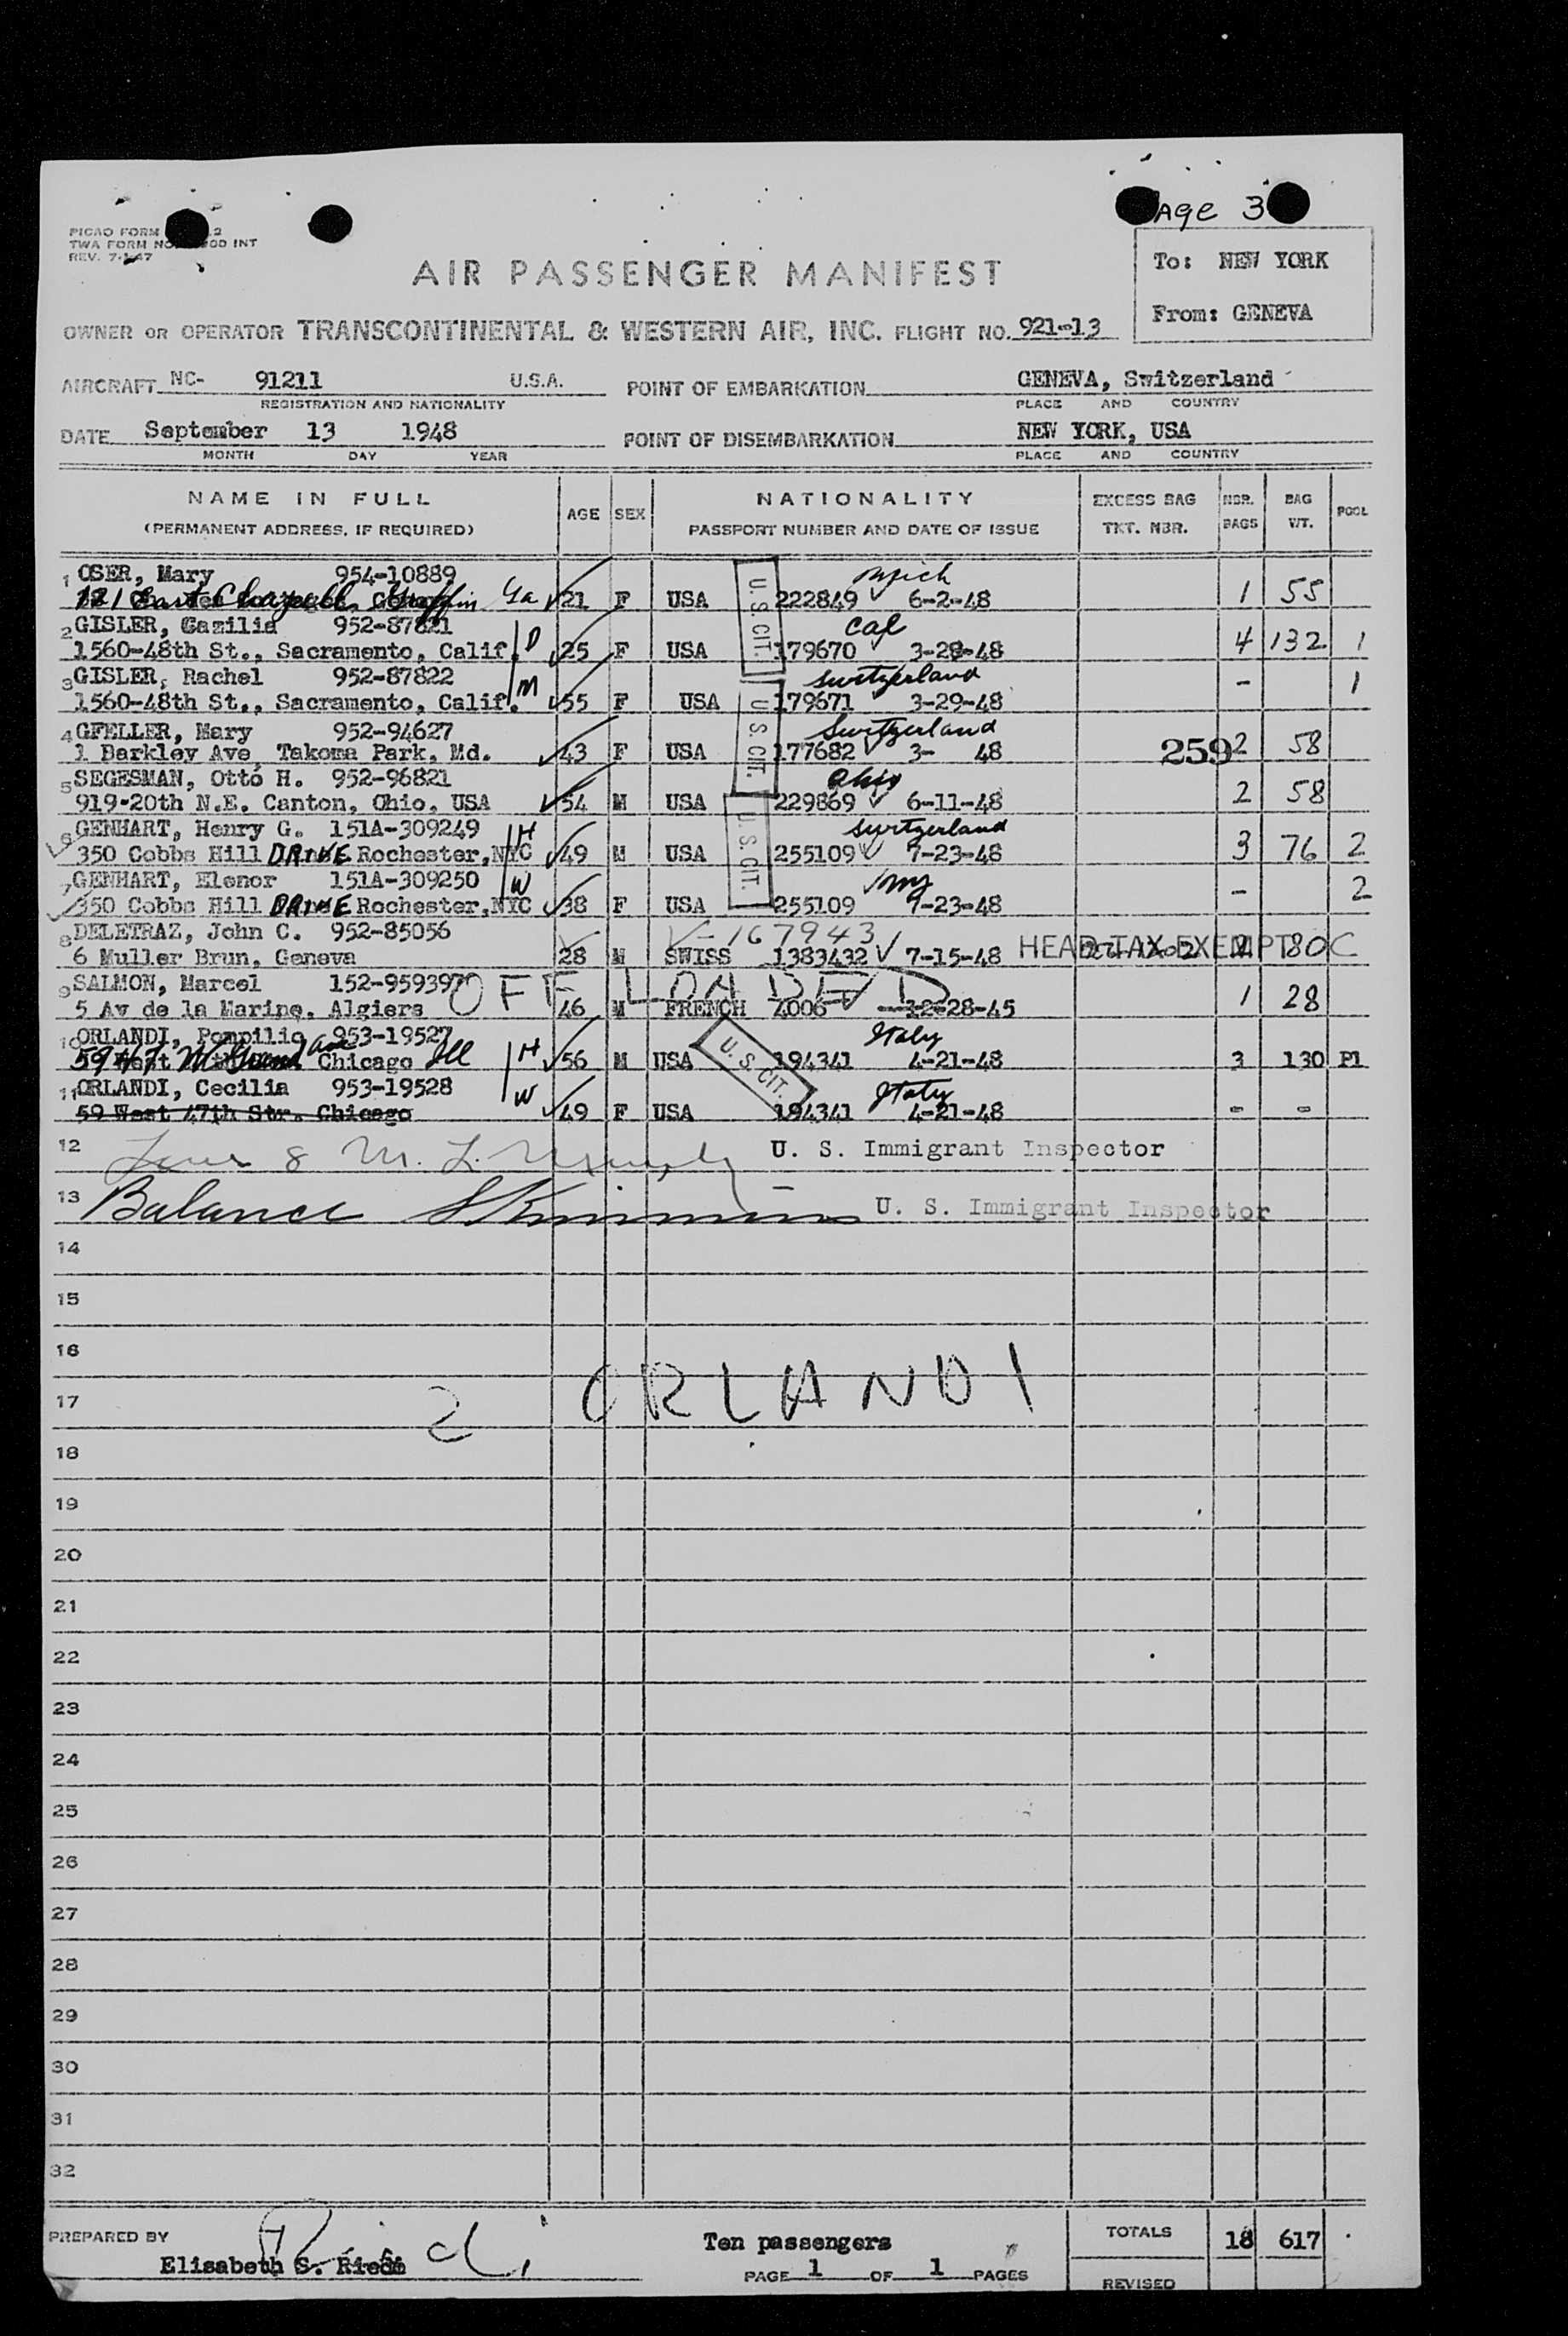 Page 3
PICAO FORM
TWA FORM NO. INT
REV. 7-1-47
AIR PASSENGER MANIFEST
To: NEW YORK
From: GENEVA
OWNER OR OPERATOR TRANSCONTINENTAL & WESTERN AIR, INC. FLIGHT NO. 921-13
AIRCRAFT NC- 91211 U.S.A. POINT OF EMBARKATION GENEVA, Switzerland
REGISTRATION AND NATIONALITY PLACE AND COUNTRY
DATE September 13 1948 POINT OF DISEMBARKATION NEW YORK, USA
MONTH DAY YEAR PLACE AND COUNTRY
NAME IN FULL AGE SEX NATIONALITY EXCESS BAG NBR. BAG POOL
(PERMANENT ADDRESS, IF REQUIRED) PASSPORT NUMBER AND DATE OF ISSUE TKT. NBR. BAGS WT.
1 OSER, Mary 954-10889
121 East Chappell Griffin Ga 21 F USA 222849 6-2-48 1 55
2 GISLER, Cazilia 952-87821 D Cal
1560-48th St., Sacramento, Calif. 25 F USA 179670 3-29-48 4 132 1
3 GISLER, Rachel 952-87822 M Switzerland
1560-48th St., Sacramento, Calif. 55 F USA 179671 3-29-48 - 1
4 GFELLER, Mary 952-94627 Switzerland
1 Barkley Ave, Takoma Park, Md. 43 F USA 177682 3- 48 259 2 58
5 SEGESMAN, Otto H. 952-96821 Ohio
919-20th N.E. Canton, Ohio, USA 54 M USA 229869 6-11-48 2 58
6 GENHART, Henry G. 151A-309249 H Switzerland
350 Cobbs Hill DRIVE Rochester, NYC 49 M USA 255109 7-23-48 3 76 2
7 GENHART, Elenor 151A-309250 W NY
350 Cobbs Hill DRIVE Rochester, NYC 38 F USA 255109 7-23-48 - 2
U. S. CIT.
U. S. CIT.
U. S. CIT.
8 DELETRAZ, John C. 952-85056 V-167943
6 Muller Brun, Geneva 28 M SWISS 1383432 7-15-48 HEAD TAX EXEMPT 2 80
9 SALMON, Marcel 152-959397 OFF LOADED
5 Av de la Marine, Algiers 46 M FRENCH 4006 12-28-45 1 28
10 ORLANDI, Pompilio 953-19527 H Italy
Chicago Ill 56 M USA 194341 4-21-48 3 130 P1
U. S. CIT.
11 ORLANDI, Cecilia 953-19528 W Italy
59 West 47th Str. Chicago 49 F USA 194341 4-21-48 - -
12 Line 8 M. L. U. S. Immigrant Inspector
13 Balance U. S. Immigrant Inspector
14
15
16
17 2 ORLANDI
18
19
20
21
22
23
24
25
26
27
28
29
30
31
32
PREPARED BY Ten passengers TOTALS 18 617
Elisabeth S. Riedi PAGE 1 OF 1 PAGES REVISED